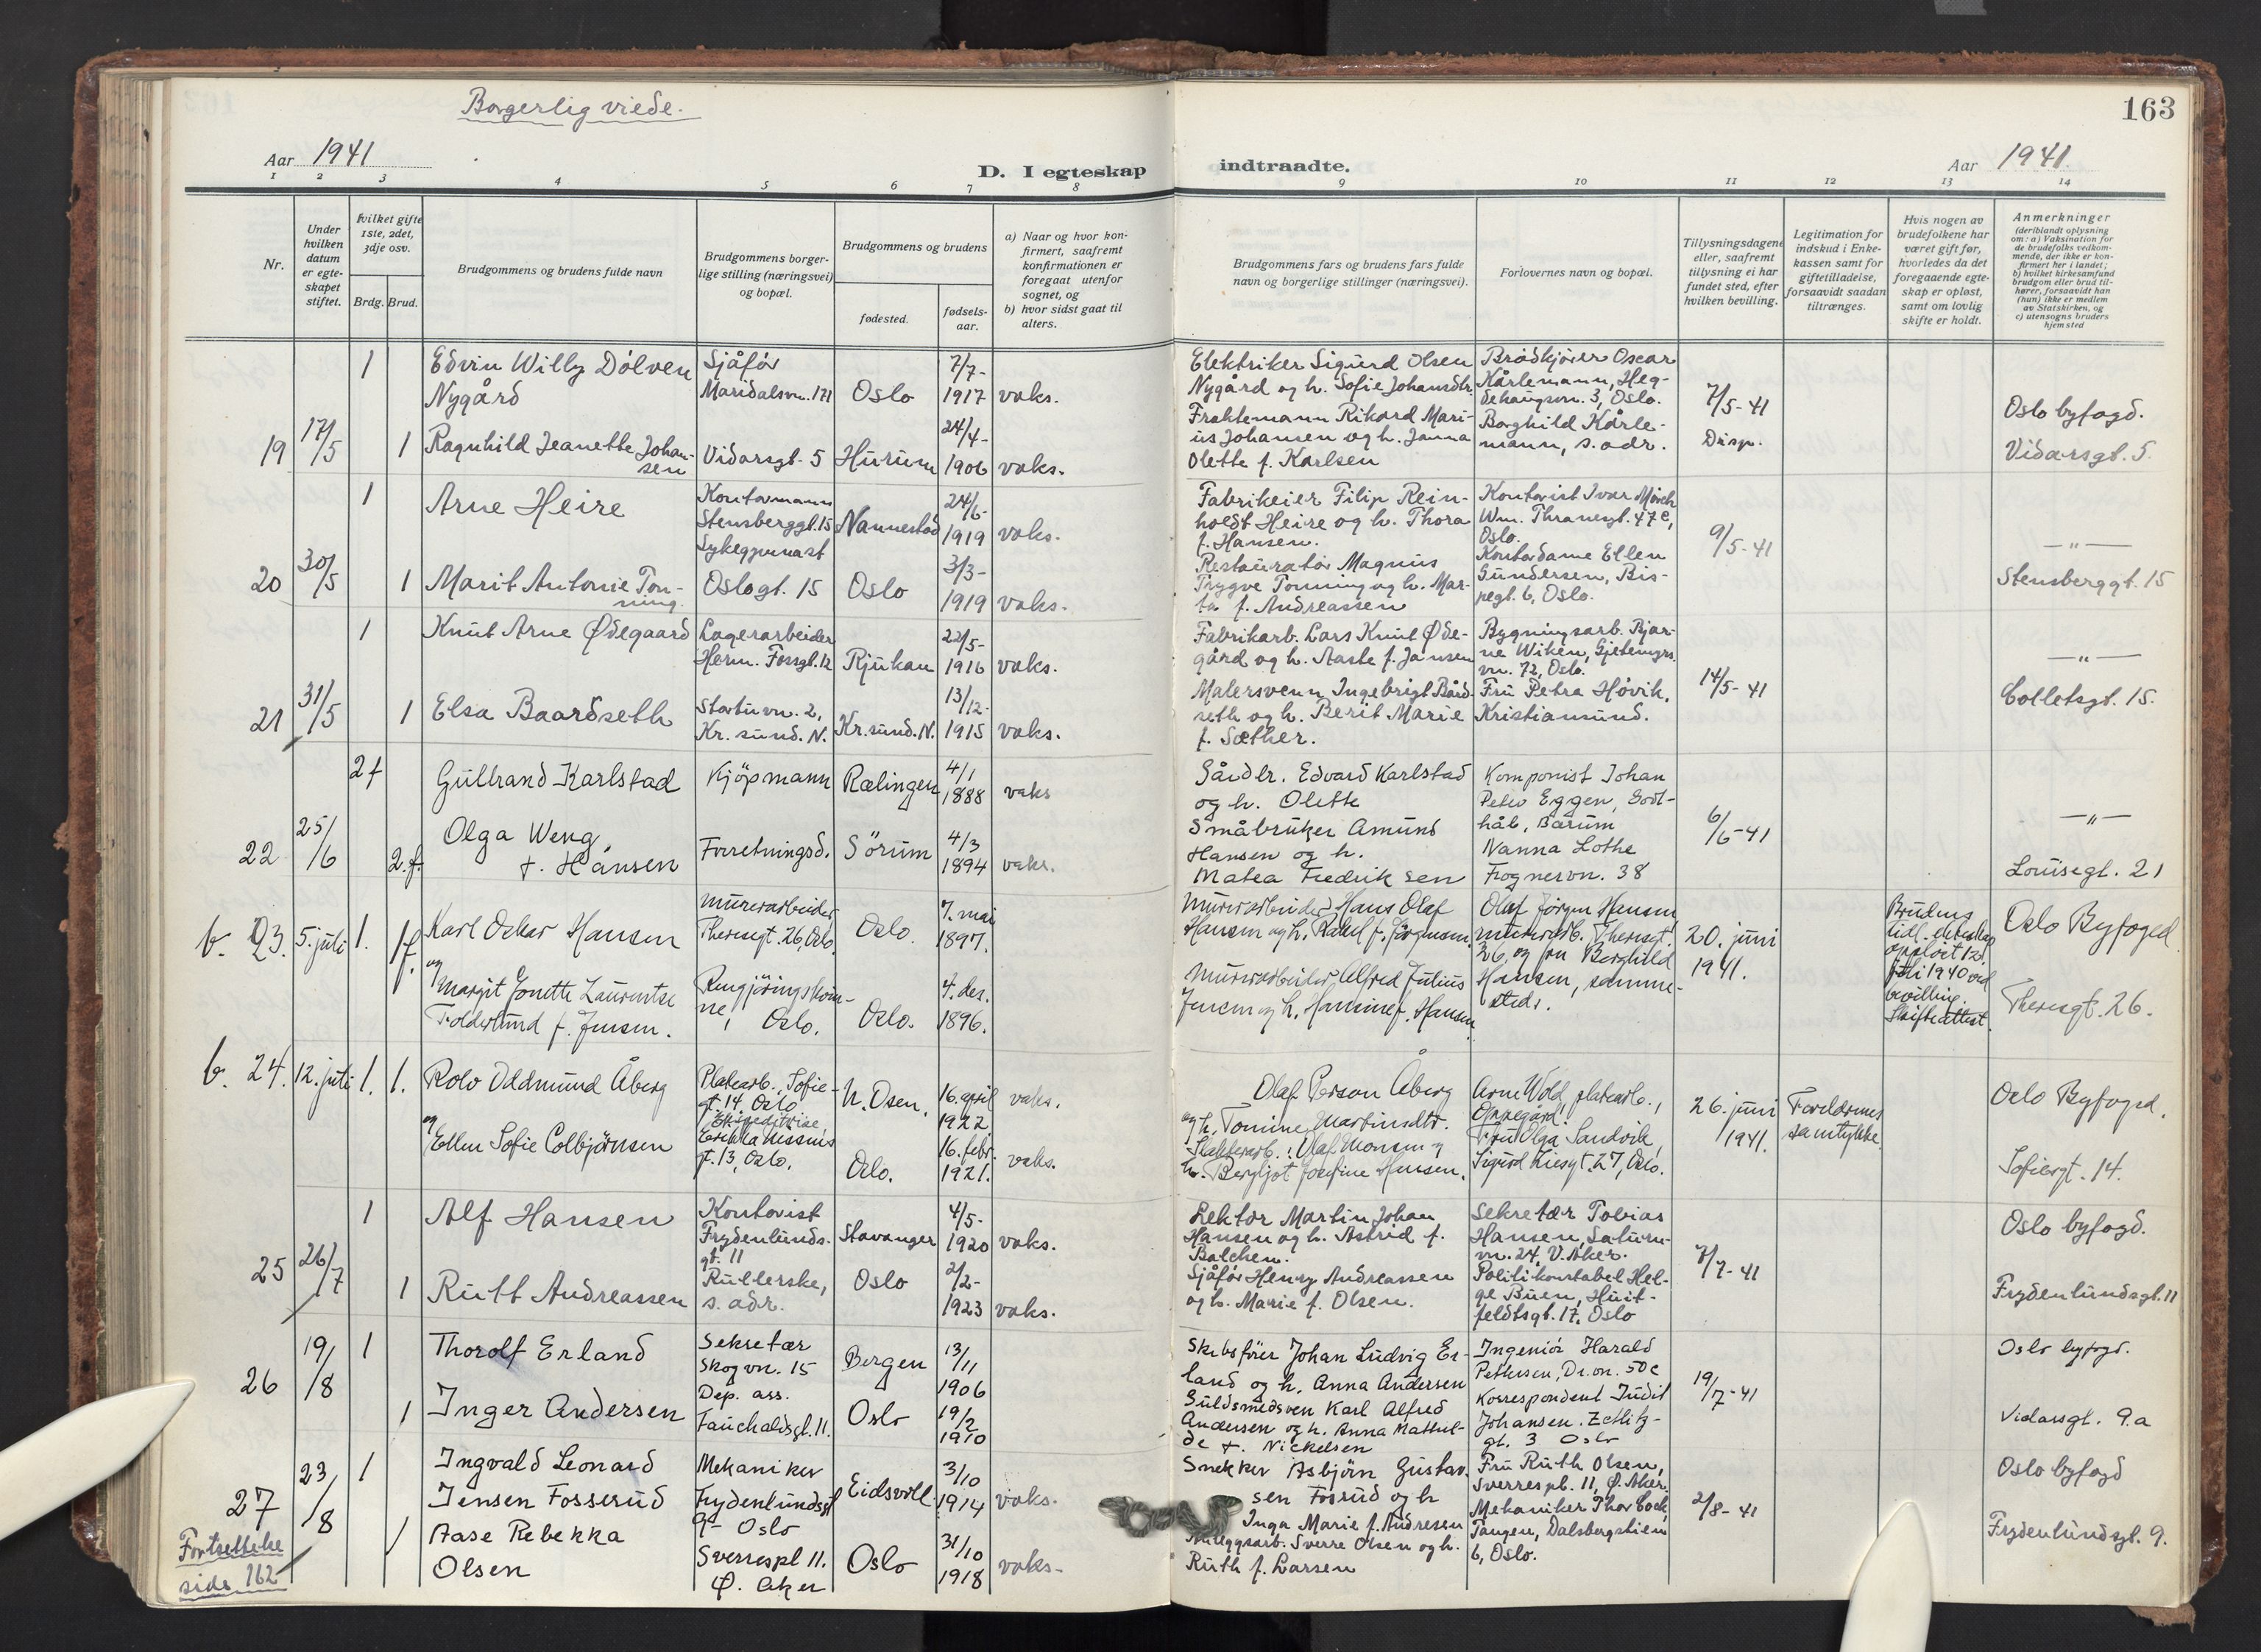 Borgerlig viede.
163
Aar 1941
D. I egteskap
indtraadte.
Aar 1941.
1 2 3 4 5 6 7 8 9 10 11 12 13 14
Nr.
Under hvilken datum er egteskapet stiftet.
Hvilket gifte 1ste, 2det, 3dje osv.
Brdg. Brud.
Brudgommens og brudens fulde navn
Brudgommens borgerlige stilling (næringsvei) og bopæl.
Brudgommens og brudens
fødested.
fødselsaar.
a) Naar og hvor konfirmert, saafremt konfirmationen er foregaat utenfor sognet, og
b) hvor sidst gaat til alters.
Brudgommens fars og brudens fars fulde navn og borgerlige stillinger (næringsvei).
Forlovernes navn og bopæl.
Tillysningsdagene eller, saafremt tillysning ei har fundet sted, efter hvilken bevilling.
Legitimation for indskud i Enkekassen samt for giftetilladelse, forsaavidt saadan tiltrænges.
Hvis nogen av brudefolkene har været gift før, hvorledes da det foregaaende egteskap er opløst, samt om lovlig skifte er holdt.
Anmerkninger
(deriblandt oplysning om: a) Vaksination for de brudefolks vedkommende, der ikke er konfirmert her i landet; b) hvilket kirkesamfund brudgom eller brud tilhører, forsaavidt han (hun) ikke er medlem av Statskirken, og c) utensogns bruders hjemsted
19 17/5
1 Edvin Willy Dølven Nygård
Sjåfør Maridalsvn. 171
Oslo 7/7-1917 vaks.
Elektriker Sigurd Olsen Nygård og h. Sofie Johansdtr.
Brødkjører Oscar Kårlemann, Hegdehaugsvn. 3, Oslo.
7/5-41 Disp.
Oslo byfogd.
1 Ragnhild Jeanette Johansen
Vidarsgt. 5 Hurum 24/4-1906 vaks.
Fraktemann Rikard Marius Johansen og h. Janna Olette f. Karlsen
Borghild Kårlemann, s. adr.
Vidarsgt. 5.
20 30/5
1 Arne Heire
Kontormann Stensberggt. 15
Nannestad 24/6-1919 vaks.
Fabrikeier Filip Reinholdt Heire og h. Thora f. Hansen.
Kontorist Ivar Wm. Thranesgt. 47 c, Oslo.
9/5-41
—"—
1 Marit Antonie Tonning.
Sykegymnast Oslogt. 15 Oslo 3/3-1919 vaks.
Restauratør Magnus Trygve Tonning og h. Marta f. Andreassen
Kontordame Ellen Gundersen, Bispegt. 6, Oslo.
Stensberggt. 15
21 31/5
1 Knut Arne Ødegaard
Lagerarbeider Herm. Fossgt. 12
Rjukan 22/5-1916 vaks.
Fabrikarb. Lars Knut Ødegård og h. Aaste f. Jansen
Bygningsarb. Bjarne Wiken, Gjetemyrsvn. 72, Oslo.
14/5-41
—"—
1 Elsa Baardseth
vn. 2, Kr. sund. N.
Kr. sund. N. 13/12-1915 vaks.
Malersvenn Ingebrigt Bårdseth og h. Berit Marie f. Sæther.
Fru Petra Høvik, Kristiansund.
Colletsgt. 15.
22 25/6
2 f Gulbrand Karlstad
Kjøpmann Rælingen 4/1 1888 vaks
Gårdbr. Edvard Karlstad og h. Olette
Komponist Johan Peter Eggen, Godthåb, Bærum
6/6-41
—"—
2. f. Olga Weng f. Hansen
Forretningsd. Sørum 4/3 1894 vaks.
Småbruker Amund Hansen og h. Matea Fredriksen
Nanna Lothe Frognervn. 38
Louisegt. 21
b. 23. 5. juli 1. 1f.
Karl Oskar Hansen
Murerarbeider Theresgt. 26, Oslo
Oslo. 7. mai 1897.
Murerarbeider Hans Olaf Hansen og h. Rakel f. Jørgensen.
Olaf Jørgen Hansen murerarb. Theresgt. 26, og fru Borghild Hansen, sammesteds.
20. juni 1941.
Brudens tidl. ekteskap oppløst 12. juli 1940 ved bevilling. Skifteattest.
Oslo Byfoged
og Margit Jonette Laurentze Folderlund f. Jensen.
Rengjøringskone, Oslo. Oslo. 4. des. 1896.
Murerarbeider Alfred Julius Jensen og h. Hansine f. Hansen
Theresgt. 26.
b. 24. 12. juli 1. 1.
Rolv Oddmund Åberg
Platearb., Sofiegt. 14. Oslo
N. Osen. 16. april 1922 vaks.
Olaf Person Åberg og h. Tomine Martinsdtr.
Arne Wold, platearb., Oppegård.
26. juni 1941.
Foreldrenes samtykke
Oslo Byfoged.
og Ellen Sofie Colbjørnsen
Ekspeditrise, Erikka Nissens gt. 13, Oslo.
Oslo. 16. febr. 1921. vaks.
Slakterarb. Olaf Monsen og h. Bergljot Josefine Hansen.
Fru Olga Sandvik, Sigurd Liesgt. 27, Oslo.
Sofiesgt. 14.
25 26/7
1 Alf Hansen
Kontorist Frydenlundsgt. 11
Stavanger 4/5-1920 vaks.
Lektor Martin Johan Hansen og h. Astrid f. Balchen.
Sekretær Tobias Hansen, Saturnvn. 24, V. Aker.
7/7-41
Oslo byfogd.
1 Rutt Andreassen
Rullerske, s. adr. Oslo 2/2-1923 vaks.
Sjåfør Henry Andreassen og h. Marie f. Olsen.
Politikonstabel Helge Buen, Huitfeldtsgt. 17. Oslo
Frydenlundsgt. 11
26 19/8
1 Thorolf Erland
Sekretær Skogvn. 15
Bergen 13/11 1906
Skibsfører Johan Ludvig Erland og h. Anna Andersen
Ingeniør Harald Pettersen, Dr.on. 50 c
19/7-41
Oslo byfogd.
1 Inger Andersen
Dep. ass. Fauchaldsgt. 11.
Oslo 19/2 1910
Guldsmedsven Karl Alfred Andersen og h. Anna Mathilde f. Nickelsen
Korrespondent Judit Johansen. Zetlitzgt. 3 Oslo
Vidarsgt. 9.a
27 23/8
1 Ingvald Leonard Jensen Fosserud
Mekaniker Frydenlundsgt 9- Oslo
Eidsvoll. 3/10 1914 vaks.
Snekker Asbjörn Gustavsen Fosrud og h Inga Marie f. Andresen
Fru Ruth Olsen, Sverrespl. 11, Ø. Aker.
2/8-41
Oslo byfogd
1 Aase Rebekka Olsen
Sverrespl 11. Ø. Aker
Oslo 31/10 1918 vaks-
Anleggsarb. Sverre Olsen og h. Ruth f. Larsen
Mekaniker Thor Tangen, Dalsbergstien 6, Oslo.
Frydenlundsgt. 9.
Fortsettelse side 162